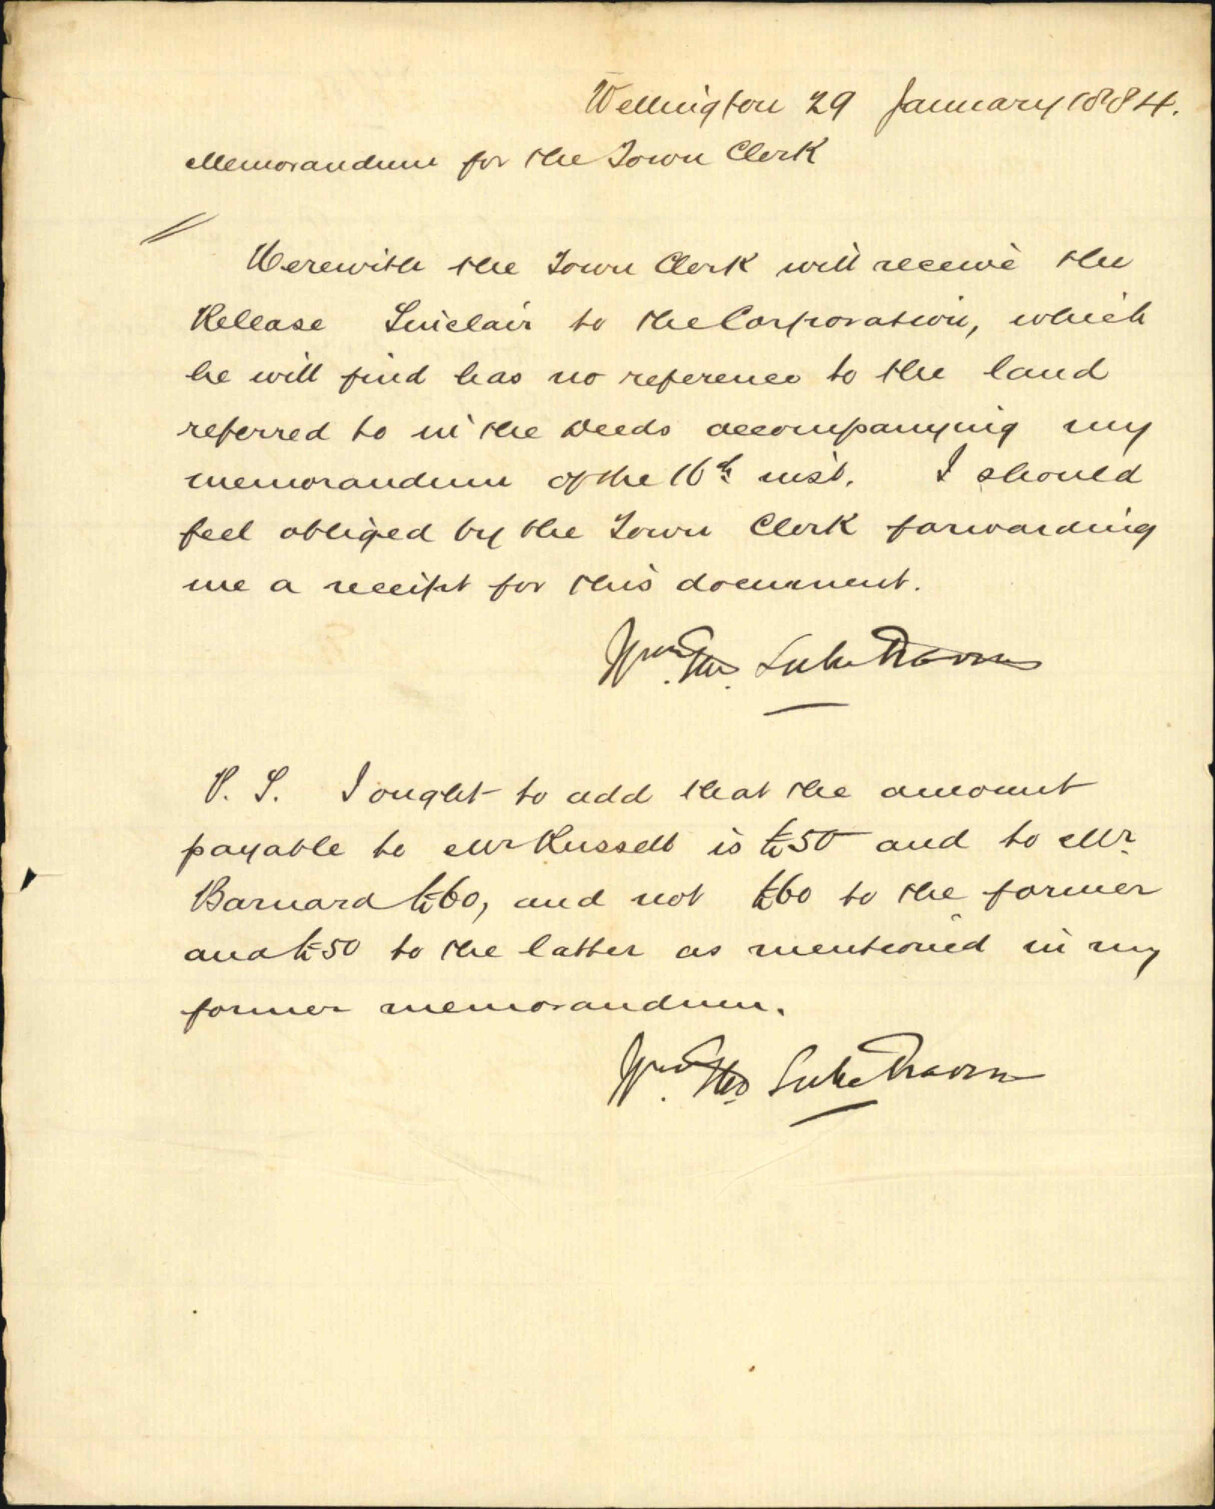 Wellington 29 January 1884.
Memorandum for the Town Clerk
Herewith the Town Clerk will receive the
Release Sinclair to the Corporation, which
he will find has no reference to the land
referred to in the Deeds accompanying my
memorandum of the 16th inst. I should
feel obliged by the Town Clerk forwarding
me a receipt for this document.
Wm. Thos. Locke Travers
P. S. I ought to add that the amount
payable to Mr Russell is £50 and to Mr.
Barnard £60, and not £60 to the former
and £50 to the latter as mentioned in my
former memorandum.
Wm. Thos. Locke Travers